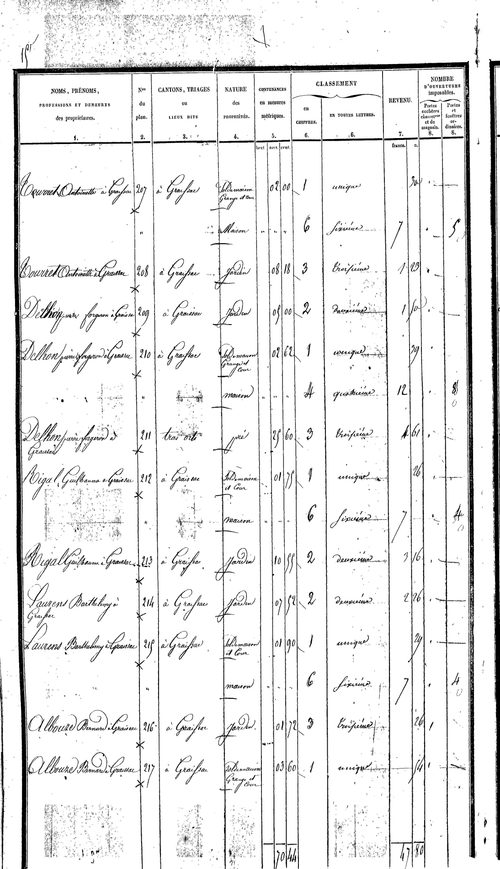 NOMS, PRÉNOMS, PROFESSIONS ET DEMEURE des propriétaires. 1.
Nos du plan. 2.
CANTONS, TRIAGES ou LIEUX DITS 3.
NATURE des PROPRIÉTÉS. 4.
CONTENANCES en MESURES métriques. 5.
CLASSEMENT
en CHIFFRES. 6.
EN TOUTES LETTRES. 6.
REVENU. 7.
NOMBRE D'OUVERTURES imposables.
Portes cochères et de magasin. 8.
Portes et fenêtres ordinaires. 8.
hect. ares. cent. francs. c.
Tourret Antoinette à Graissac 207 à Graissac Sol de maison Grange et Cour 02 00 1 unique 30
Maison 6 sixième 7 5
Tourret Antoinette à Graissac 208 à Graissac Jardin 08 18 3 troisième 1 23
forgeron à Graissac 209 à Graissac Jardin 05 00 2 deuxième 1 50
Delhon forgeron à Graissac 210 à Graissac Sol de maison Grange et Cour 02 62 1 unique 39
maison 4 quatrième 12 8
Delhon forgeron à Graissac 211 pré 25 60 3 troisième 61
Rigal Guillaume à Graissac 212 à Graissac Sol de maison et Cour 01 75 1 unique 26
maison 6 sixième 7 4
Rigal Guillaume à Graissac 213 à Graissac Jardin 10 55 2 deuxième 3 16
Laurens Barthelemy à Graissac 214 à Graissac Jardin 07 52 2 deuxième 2 26
Laurens Barthelemy à Graissac 215 à Graissac Sol de maison et Cour 01 90 1 unique 29
maison 6 sixième 7 4
Albouze Bernard à Graissac 216 à Graissac Jardin 01 72 3 troisième 26
Albouze Bernard à Graissac 217 à Graissac Sol de maison Grange et Cour 03 60 1 unique 54
70 44 47 80